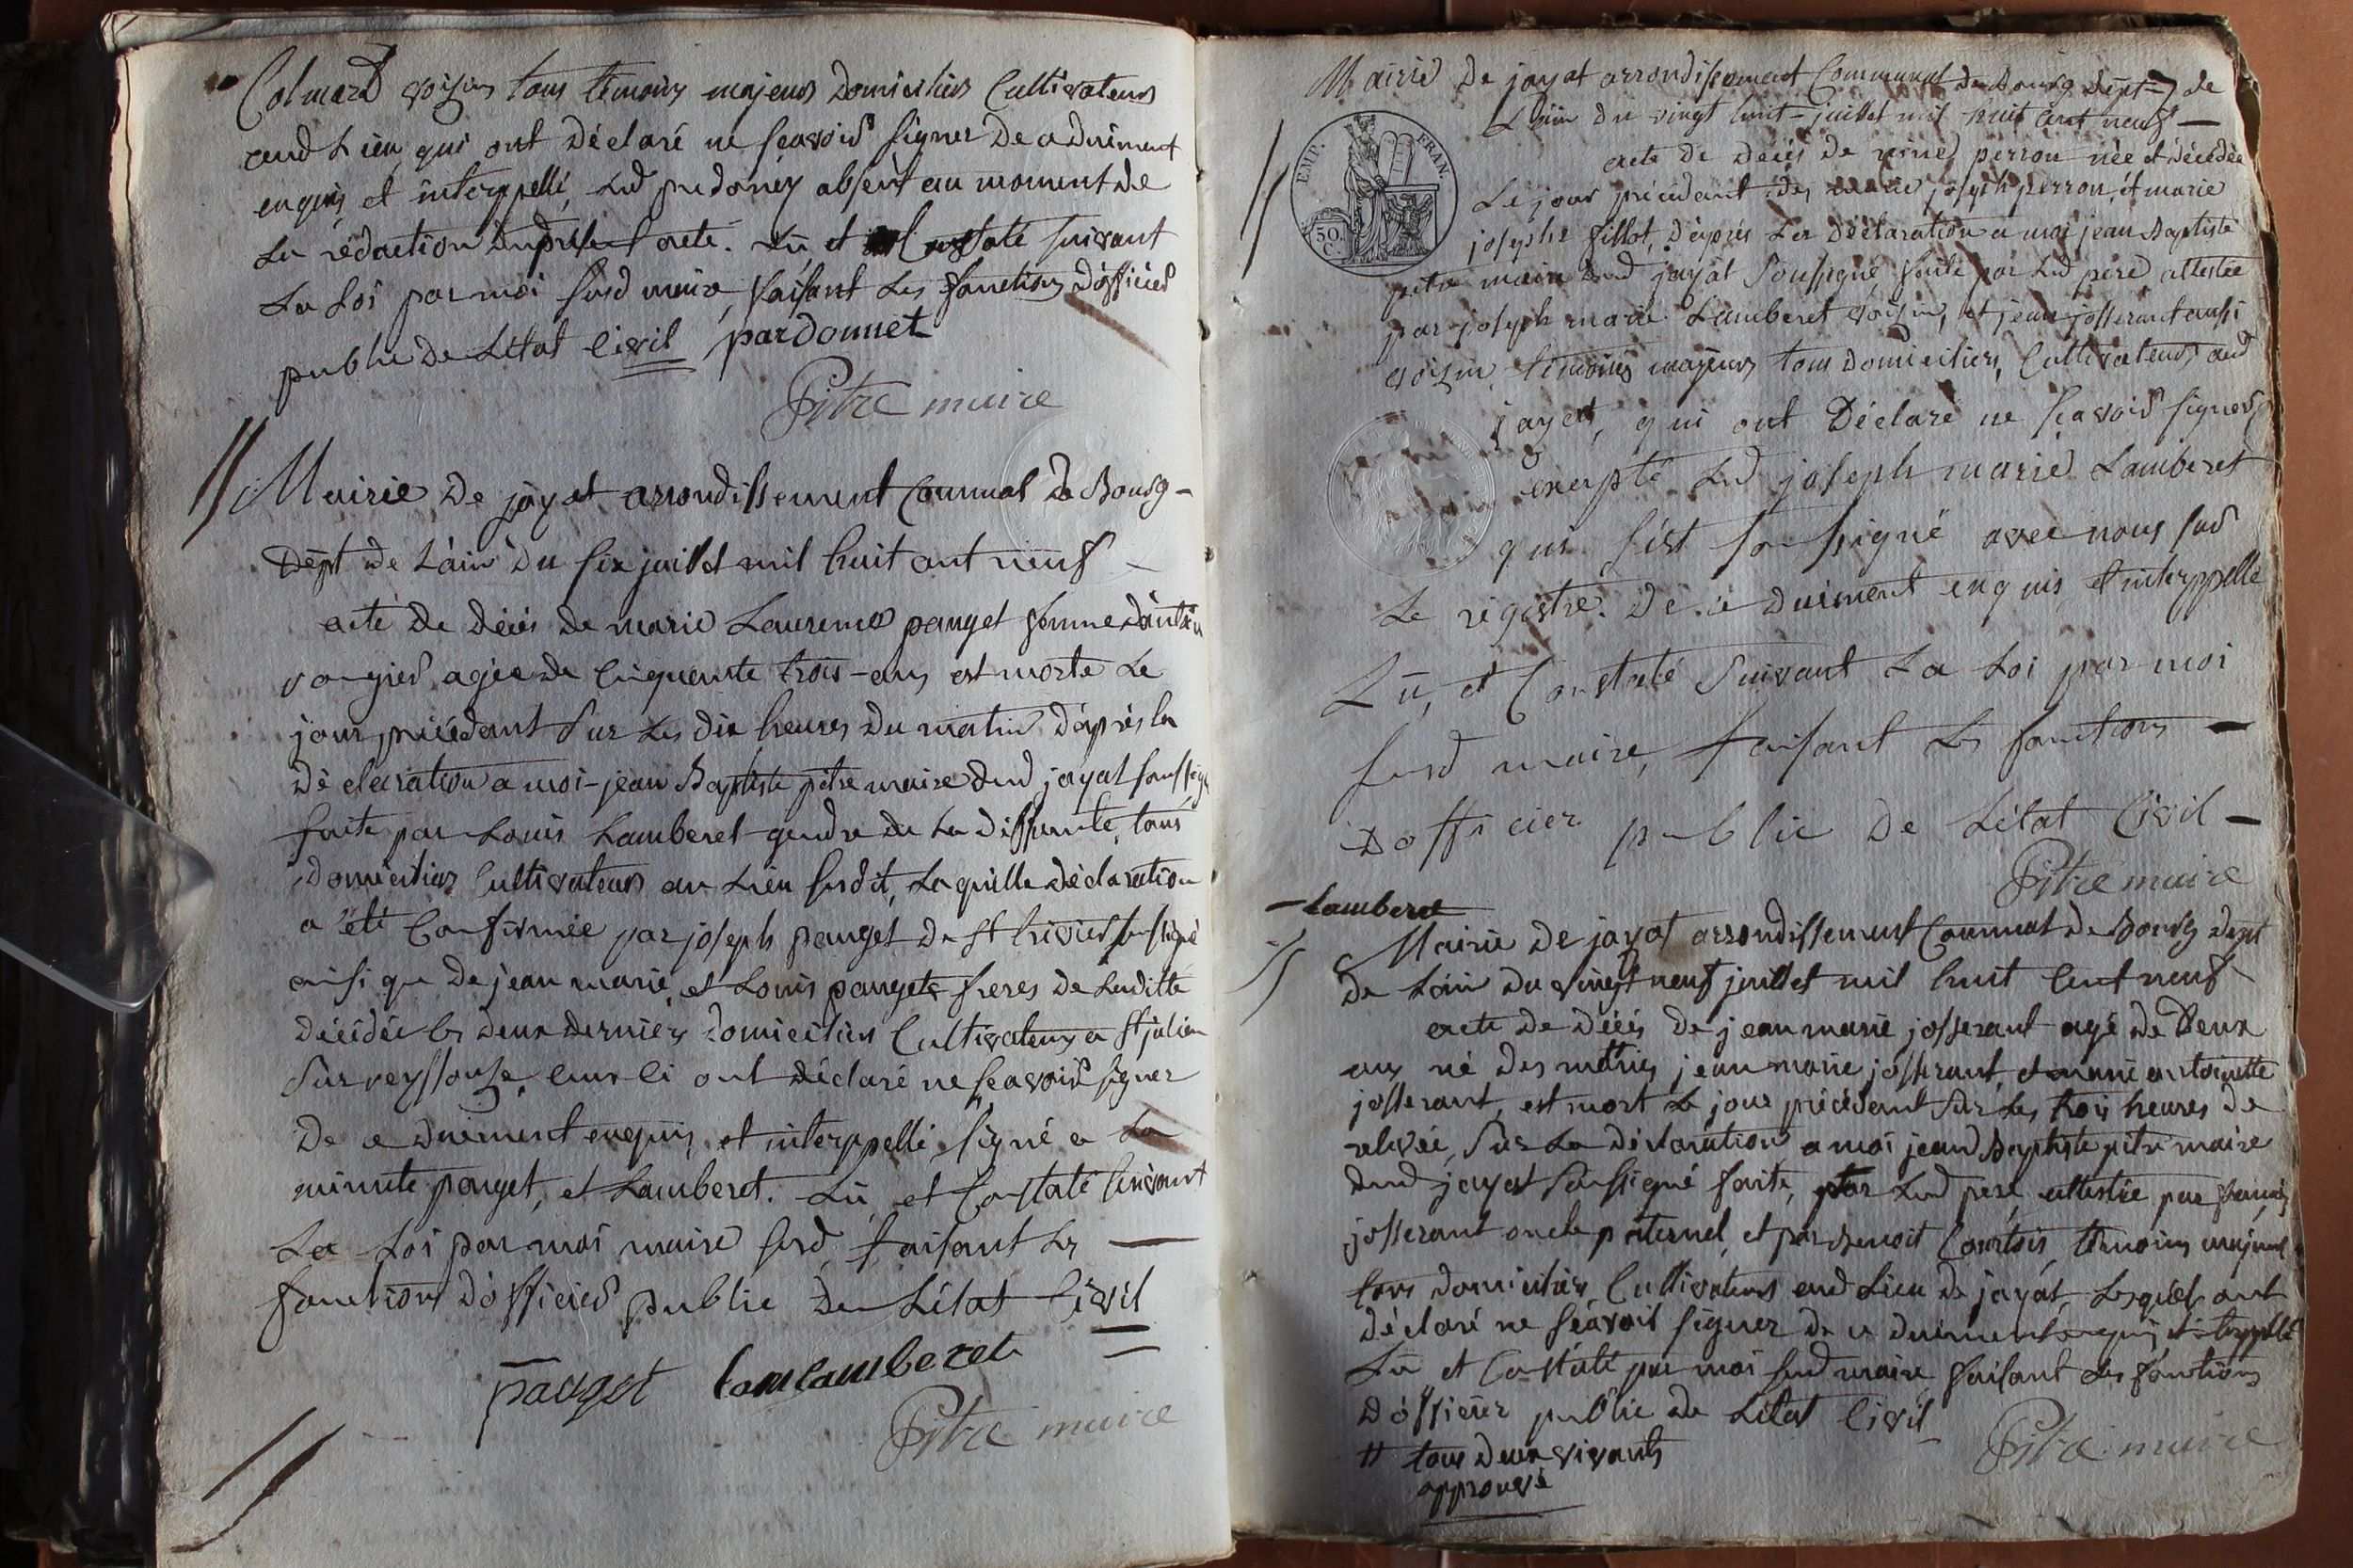 Colmard voisin tous temoins majeurs domiciliés Cultivateurs
aud Lieu qui ont déclaré ne sçavoir signer de ce duëment
enquis et interppellé, absent au moment de
La rédaction du présent acte. Lû et Constaté suivant
La Loi par moi susd maire, faisant Les fonctions d'officier
public de L'état Civil pardonnet
Pitre maire
Mairie de jayat arrondissement Communal de Bourg -
Dépt de L'ain du six juillet mil huit cent neuf -
acte de décés de marie Laurence pauget femme d'antoine
agée de Cinquante trois-ans est morte Le
jour précédant sur Les dix heures du matin d'après la
déclaration a moi-jean Baptiste pitre maire dud jayat soussigné
faite par Louis Lamberet gendre de La deffunte, tous
domiciliés Cultivateurs au Lieu susdit, Laquelle déclaration
a été Confirmée par joseph pauget de st trivier soussigné
ainsi que de jean marie, et Louis paugets freres de Laditte
décédée les deux derniers domiciliés Cultivateurs a st julien
sur reyssouze, ceux ci ont déclaré ne sçavoir signer
de ce duëment enquis et interppellé, signé a La
minute pauget, et Lamberet. Lû et Constaté suivant
La Loi par moi maire susd, faisant Les —
fonctions d'officier public de L'état Civil
pauget Lamberet
Pitre maire
Mairie de jayat arrondissement Communal de Bourg dépt de
L'ain du vingt huit-juillet mil huit cent neuf —
EMP. FRAN.
50. C.
acte de décés de perron née et décédée
Le jour précédant des joseph perron, et marie
josephe fillot, d'après La déclaration a moi jean Baptiste
pitre maire dud jayat soussigné, faite par Led père, attestée
par joseph marie Lamberet voisin, et jean josserant aussi
voisin, témoins majeurs tous domiciliés, Cultivateurs aud
jayat, qui ont déclaré ne sçavoir signer
excepté Led joseph marie Lamberet
qui s'est soussigné avec nous sur
Le régistre. de ce duëment enquis, et interppellé
Lû, et Constaté suivant La Loi par moi
susd maire, faisant Les fonctions —
D'officier public de L'état Civil —
Pitre maire
- Lamberet
Mairie de jayat arrondissement Communal de Bourg dépt
de L'ain du vingt neuf juillet mil huit Cent neuf
acte de décés de jean marie josserant agé de deux
ans né des mariés jean marie josserant, et marie antoinette
josserant, est mort Le jour précédant sur Les trois heures de
relevée, sur La déclaration a moi jean Baptiste pitre maire
dud jayat soussigné faite, par Led père, attestée par
josserant oncle paternel, et par Benoit Courtois, témoins majeurs
tous domiciliés Cultivateurs aud Lieu de jayat, Lesquels ont
déclaré ne sçavoir signer de ce duëment enquis et interppellé
Lû et Constaté par moi susd maire faisant Les fonctions
d'officier public de L'état Civil
Pitre maire
# tous deux vivants
approuvé